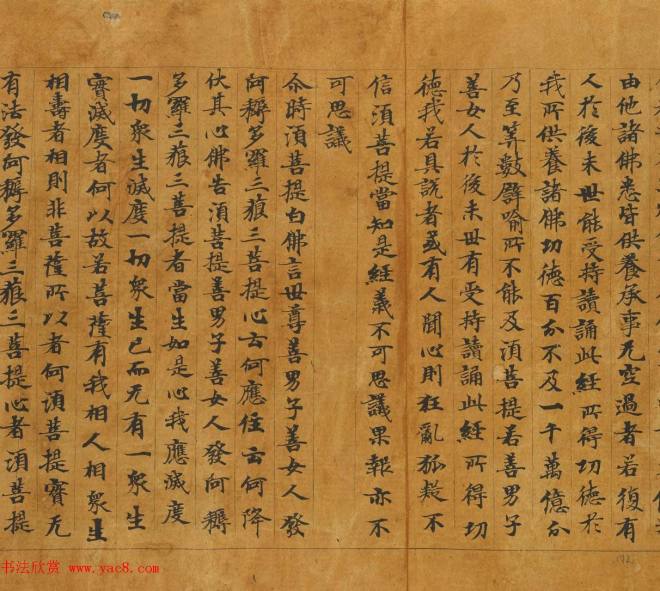 由他諸佛悉皆供養承事无空過者若復有
人於後末世能受持讀誦此經所得切德於
我所供養諸佛切德百分不及一千萬億分
乃至筭數譬喻所不能及湏菩提若善男子
善女人於後末世有受持讀誦此經所得切
德我若具說者或有人聞心則狂亂狐疑不
信湏菩提當知是經義不可思議果報亦不
可思議
尒時湏菩提白佛言世尊善男子善女人發
阿耨多羅三藐三菩提心云何應住云何降
伏其心佛告湏菩提善男子善女人發阿耨
多羅三藐三菩提者當生如是心我應滅度
一切衆生滅度一切衆生已而无有一衆生
實滅度者何以故若菩薩有我相人相衆生
相壽者相則非菩薩所以者何湏菩提實无
有法發阿耨多羅三藐三菩提心者湏菩提
书法欣赏 www.yac8.com